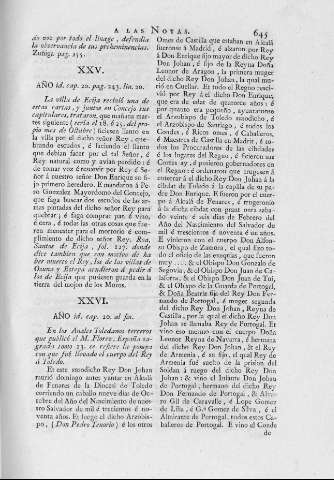 A LAS NOTAS.
645
de voz por todo el linage, defendia
la observancia de sus prebeminencias.
Zuñiga pag. 235.
XXV.
AÑO id. cap. 20. pag. 243. lin. 20.
La villa de Ecija recibió una de
estas cartas, y juntos en Concejo sus
capitulares, trataron, que mañana mar-
tes siguiente (seria el 28. ó 25. del pro-
pio mes de Octubre) ficiesen llanto en
la villa por el dicho señor Rey, que-
brando escudos, é faciendo el llanto
que debian facer por el tal Señor, é
Rey natural como y avian perdido: é
de tomar voz é renovir por Rey é Se-
ñor à nuestro señor Don Enrique su fi-
jo primero heredero. E mandaron à Pe-
ro Gonzalez Mayordomo del Concejo,
que faga buscar dos escudos de las ar-
mas pintadas del dicho señor Rey para
quebrar; é faga comprar pan é vino,
é cera, é todas las otras cosas que fue-
ren menester para el mortorio é com-
plimiento de dicho señor Rey. Roa,
Santos de Ecija, fol. 127. donde
dice tambien que con motivo de ha-
ber muerto el Rey, los de las villas de
Osuna y Estepa acudieron à pedir à
los de Ecija que pusiesen guarda en la
tierra del enojo de los Moros.
XXVI.
AÑO id. cap. 20. al fin.
En los Anales Toledanos terceros
que publicó el M. Florez, España sa-
grada tomo 23. se refiere la pompa
con que fuè llevado el cuerpo del Rey
à Toledo.
Et este susodicho Rey Don Johan
murió domingo antes yantar en Alcalà
de Fenares de la Diocesi de Toledo
corriendo un caballo nueve dias de Oc-
tubre del Año del Nascimiento de nues-
tro Salvador de mil é trecientos é no-
venta años. Et luego el dicho Arzobis-
po, (Don Pedro Tenorio) é los otros
Omes de Castilla que estaban en Alcalà
fueronse à Madrid, é alzaron por Rey
à Don Enrique fijo mayor de dicho Rey
Don Johan, é fijo de la Reyna Doña
Leonor de Aragon, la primera muger
del dicho Rey Don Johan, la qual mu-
rió en Cuellar. Et todo el Regno rescii-
bió por Rey à él dicho Don Enrique,
que era de edat de quatorce años: é
por quanto era pequeño, ayuntaronse
el Arzobispo de Toledo susodicho, é
el Arzobispo de Santiago, é todos los
Condes, é Ricos omes, é Caballeros,
é Maestres de Castilla en Madrit, é to-
dos los Procuradores de las cibdades
é de los lugares del Regno, é ficieron sus
Cortes ay, é pusieron gobernadores en
el Regno: é ordenaron que truxesen à
enterrar à el dicho Rey Don Johan à la
cibdat de Toledo à la capilla de su pa-
dre Don Enrique. E fueron por el cuer-
po à Alcalà de Fenares, é truxeronlo
à la dicha cibdat con grant onra sabado
veinte é seis dias de Febrero del
Año del Nascimiento del Salvador de
mil é trescientos é noventa é un años.
E vinieron con el cuerpo Don Alfon-
so Obispo de Zamora, el qual fizo to-
do el oficio de las exequias, que fueron
muy .... & el Obispo Don Gonzalo de
Segovia, & el Obispo Don Juan de Ca-
lahorra, & el Obispo Don Juan de Tui,
& el Obispo de la Guarda de Portugal,
& Doña Beatriz fija del Rey Don Fer-
nando de Portugal, é muger segunda
del dicho Rey Don Johan, Reyna de
Castilla, por la qual el dicho Rey Don
Johan se llamaba Rey de Portugal. Et
vino eso mesmo con el cuerpo Doña
Leonor Reyna de Navarra, é hermana
del dicho Rey Don Johan, & el Rey
de Armenia, é su fijo, el qual Rey de
Armenia fuè suelto de la prision del
Soldan à ruego del dicho Rey Don
Johan: & vino el Infante Don Johan
de Portogal, hermano del dicho Rey
Don Fernando de Portogal, & Alva-
ro Gil de Caravalle, é Lope Gomez
de Lilla, é G.º Gomez de Silva, é el
Almirante de Portogal, todos estos Ca-
balleros de Portogal. E vino el Conde
de